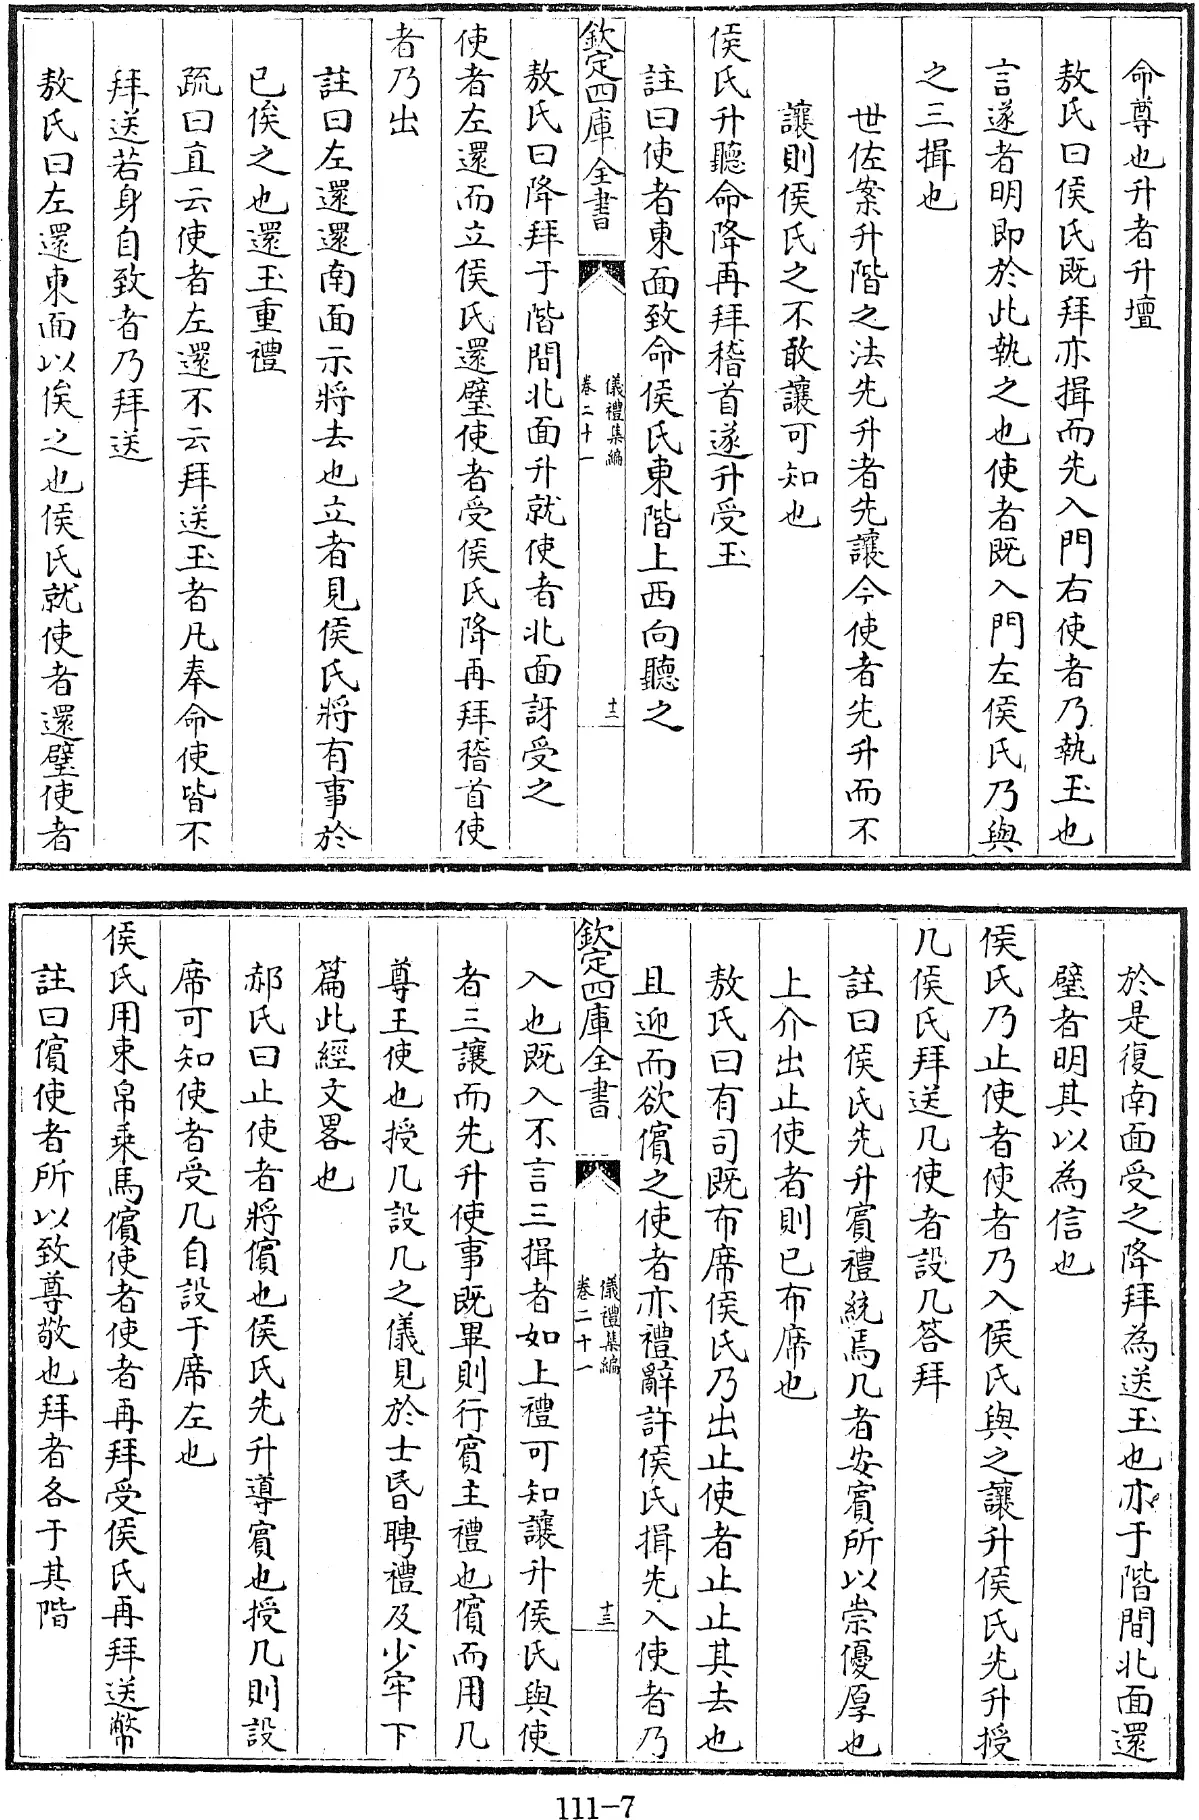 命尊也升者升壇
敖氏曰侯氏既拜亦揖而先入門右使者乃執玉也
言遂者明即於此執之也使者既入門左侯氏乃與
之三揖也
世佐案升階之法先升者先讓今使者先升而不
讓則侯氏之不敢讓可知也
侯氏升聽命降再拜稽首遂升受玉
註曰使者東面致命侯氏東階上西向聽之
欽定四庫全書
儀禮集編
卷二十一
十二
敖氏曰降拜于階間北面升就使者北面訝受之
使者左還而立侯氏還璧使者受侯氏降再拜稽首使
者乃出
註曰左還還南面示將去也立者見侯氏將有事於
已俟之也還玉重禮
疏曰直云使者左還不云拜送玉者凡奉命使皆不
拜送若身自致者乃拜送
敖氏曰左還東面以俟之也侯氏就使者還璧使者
於是復南面受之降拜為送玉也亦于階間北面還
璧者明其以為信也
侯氏乃止使者使者乃入侯氏與之讓升侯氏先升授
几侯氏拜送几使者設几答拜
註曰侯氏先升賓禮統焉几者安賓所以崇優厚也
上介出止使者則已布席也
敖氏曰有司既布席侯氏乃出止使者止止其去也
且迎而欲儐之使者亦禮辭許侯氏揖先入使者乃
欽定四庫全書
儀禮集編
卷二十一
十三
入也既入不言三揖者如上禮可知讓升侯氏與使
者三讓而先升使事既畢則行賓主禮也儐而用几
尊王使也授几設几之儀見於士昏聘禮及少牢下
篇此經文畧也
郝氏曰止使者將儐也侯氏先升導賓也授几則設
席可知使者受几自設于席左也
侯氏用束帛乘馬儐使者使者再拜受侯氏再拜送幣
註曰儐使者所以致尊敬也拜者各于其階
111-7